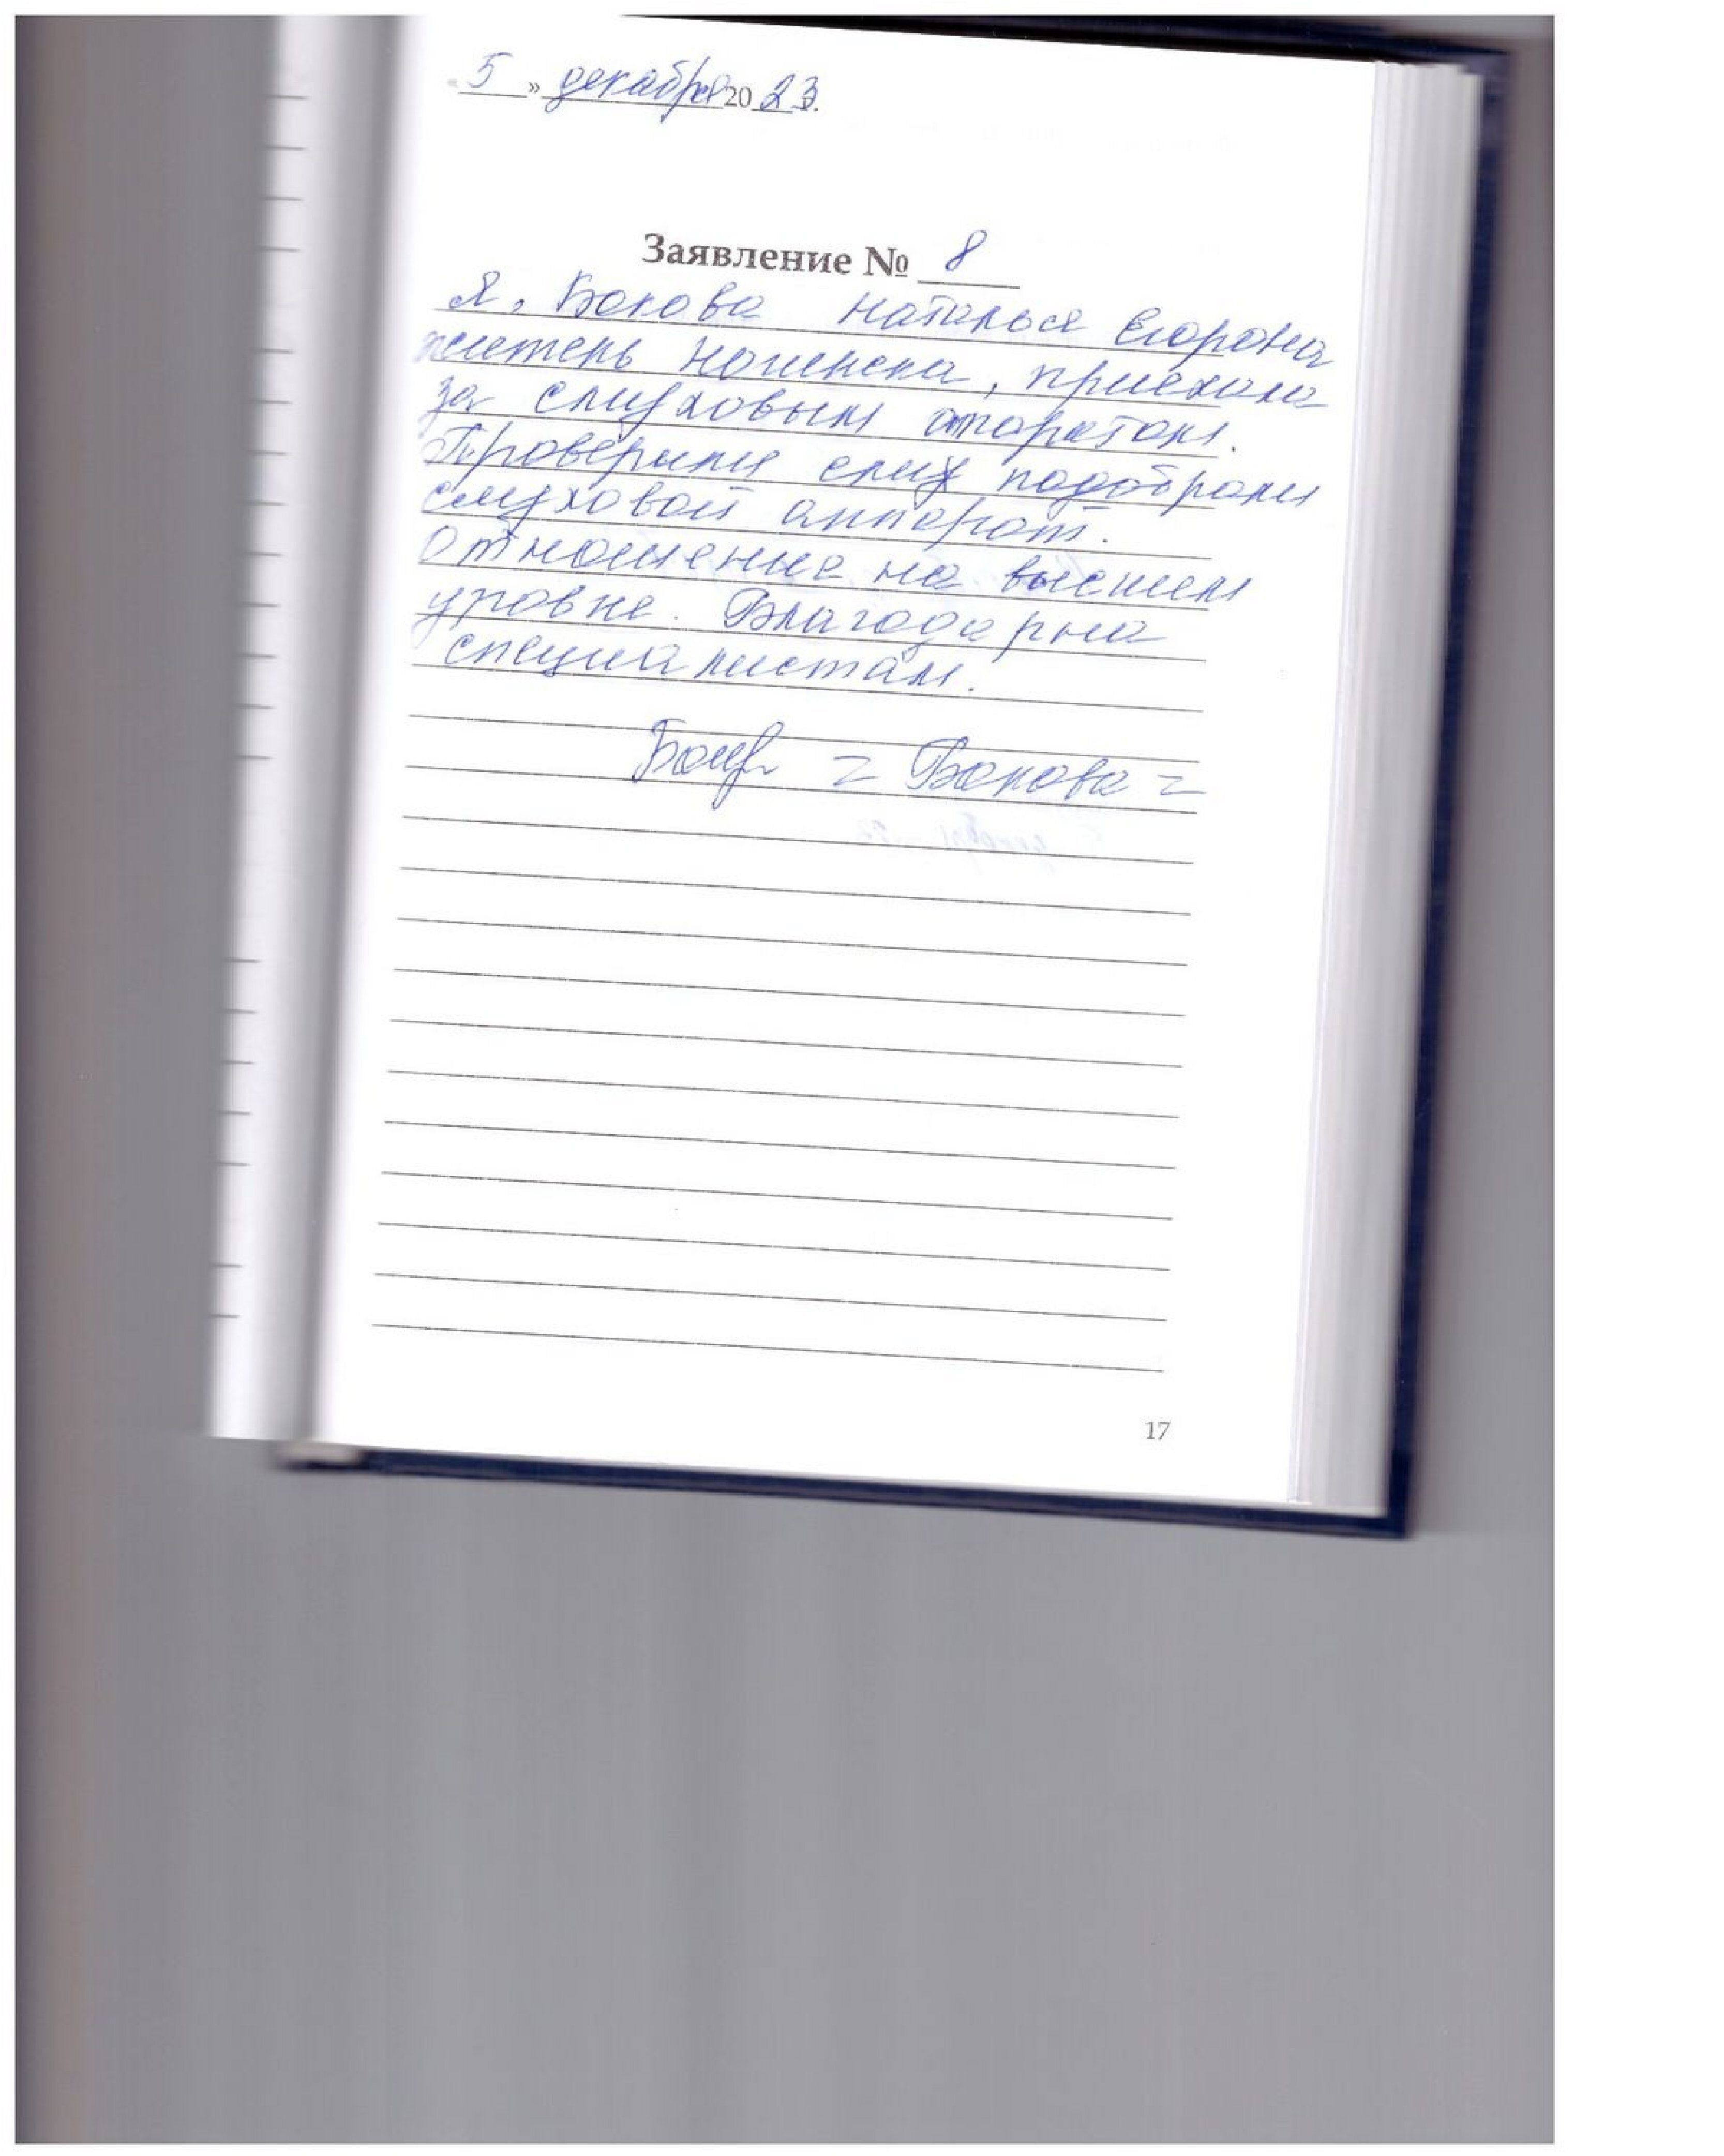 « 5 » декабря 20 23.
Заявление № 8
Я, Бокова Наталья Егорона
житель Ногинска, приехала
за слуховым апаратом.
Проверили слух подобрали
слуховой аппарат.
Отношение на высшем
уровне. Благодарна
специалистам.
= Бокова =
17